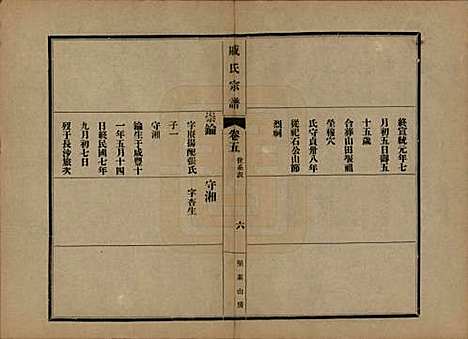 終宣統元年七
月初五日御五
十五歲
合葬山田堰祖
塋穆穴
氏守貞卅八年
從祀石公山節
烈祠
戚氏宗譜
卷五
世系表
六
崇鑰
字
揚配張氏
子一
守湘
鑰生于咸豐十
一年五月十四
日終民國七年
九月初七日
殁于長沙旅次
守湘
字杏生